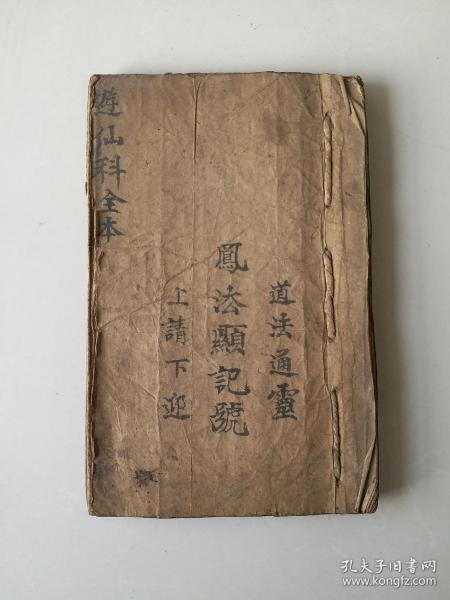 道法通靈
鳳法顯記號
上請下迎
遊仙科全本
孔夫子旧书网
www.kongfz.com